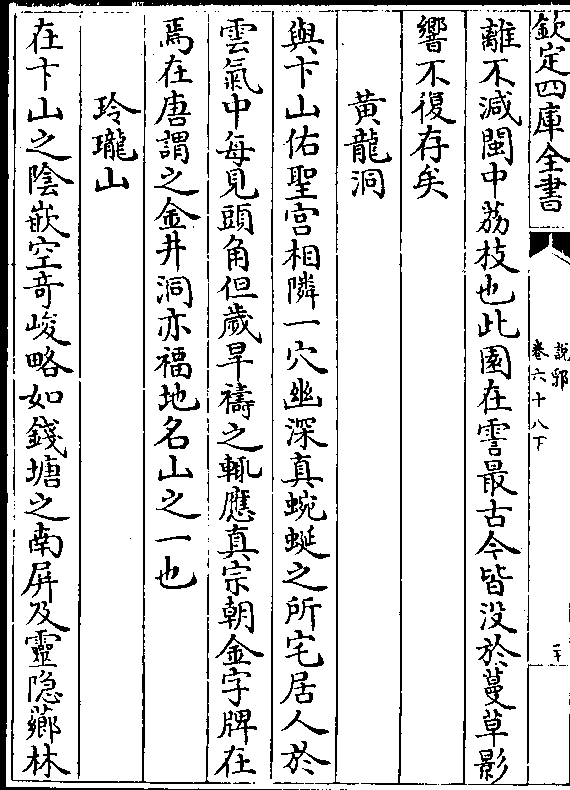 欽定四庫全書
說郛
卷六十八下
離不減閩中荔枝也此園在霅最古今皆没於蔓草影
響不復存矣
黄龍洞
與卞山佑聖宫相隣一穴幽深真蜿蜒之所宅居人於
雲氣中每見頭角但歲旱禱之輒應真宗朝金字牌在
焉在唐謂之金井洞亦福地名山之一也
玲瓏山
在卞山之陰嵌空竒峻略如錢塘之南屏及靈隱薌林